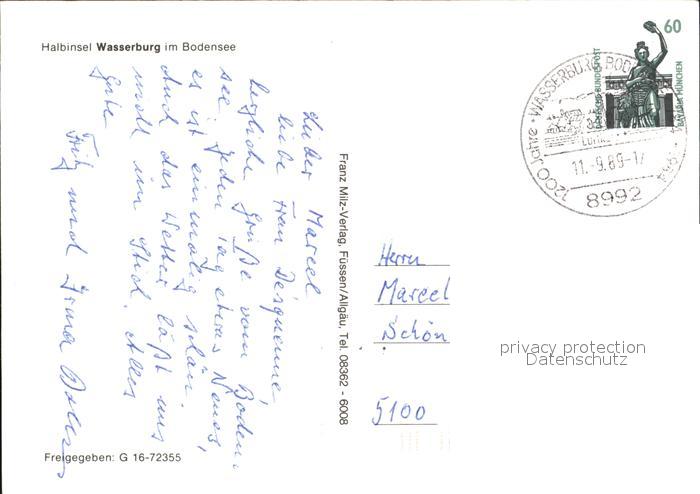 Halbinsel Wasserburg im Bodensee
Lieber Marcel
liebe Frau Desquenne
herzliche Grüße vom Boden-
see. Jeden Tag etwas Neues,
es ist einmalig schön.
Auch das Wetter läßt uns
nicht im Stich. Alles
Gute
Fritz und Irma
Freigegeben: G 16-72355
Franz Milz-Verlag, Füssen/Allgäu, Tel. 08362 - 6008
60
DEUTSCHE BUNDESPOST
BAVARIA MÜNCHEN
1200 Jahre · WASSERBURG BODENSEE
11.-9.89-17
8992
Herrn
Marcel
Schön
5100
privacy protection
Datenschutz